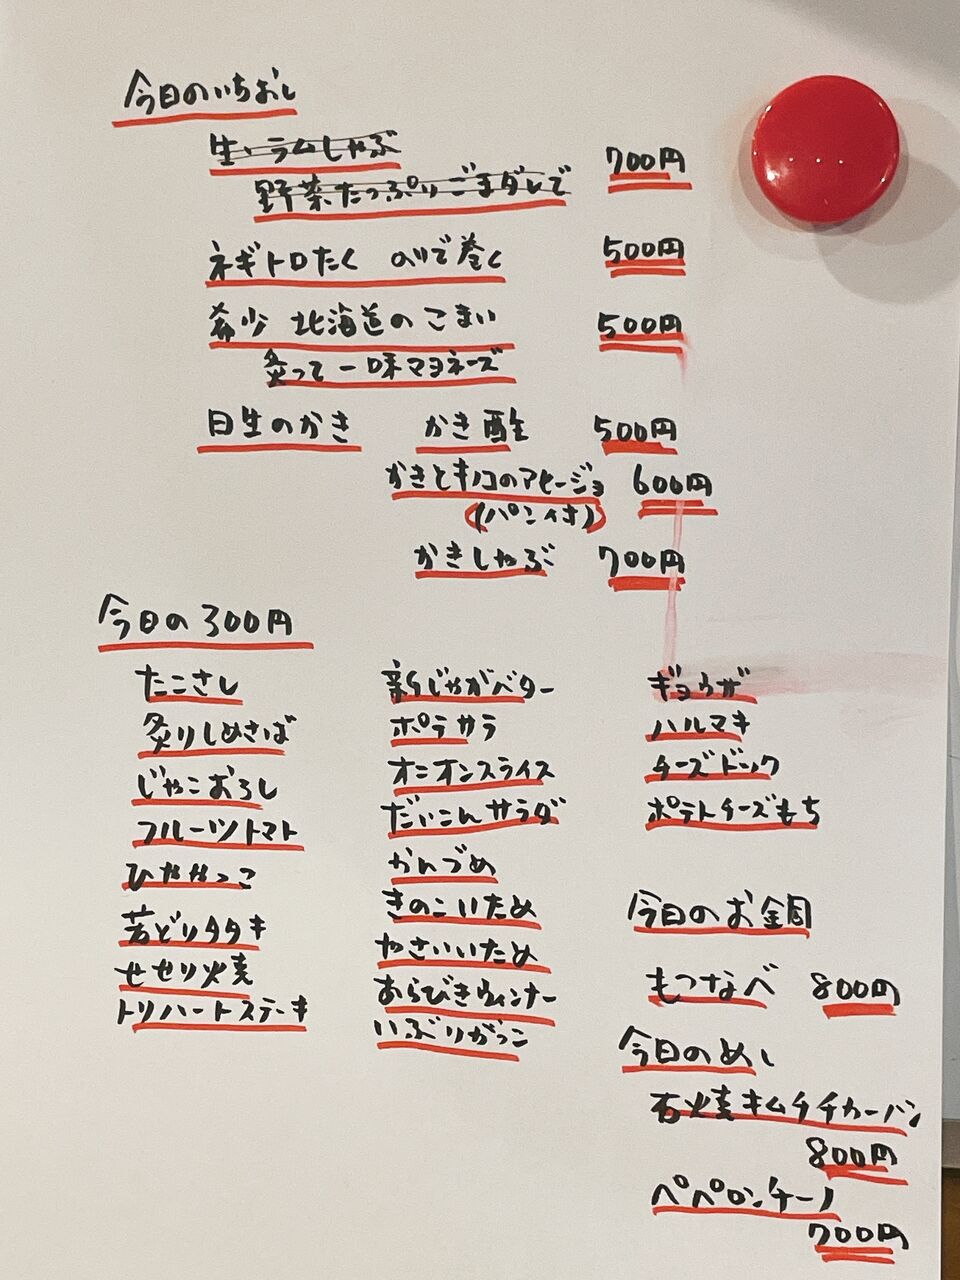 今日のいちおし
生、ラムしゃぶ
野菜たっぷりごまダレで 700円
ネギトロたく のりで巻く 500円
希少 北海道のこまい 500円
炙って一味マヨネーズ
日生のかき かき酢 500円
かきとキノコのアヒージョ 600円
(パン付き)
かきしゃぶ 700円
今日の300円
たこさし
炙りしめさば
じゃこおろし
フルーツトマト
ひややっこ
若どりタタキ
せせり焼
トリハートステーキ
新じゃがバター
ポテサラ
オニオンスライス
だいこんサラダ
かんづめ
きのこいため
やさいいため
あらびきウィンナー
いぶりがっこ
ギョウザ
ハルマキ
チーズドック
ポテトチーズもち
今日のお鍋
もつなべ 800円
今日のめし
石焼キムチチャーハン
800円
ペペロンチーノ
700円